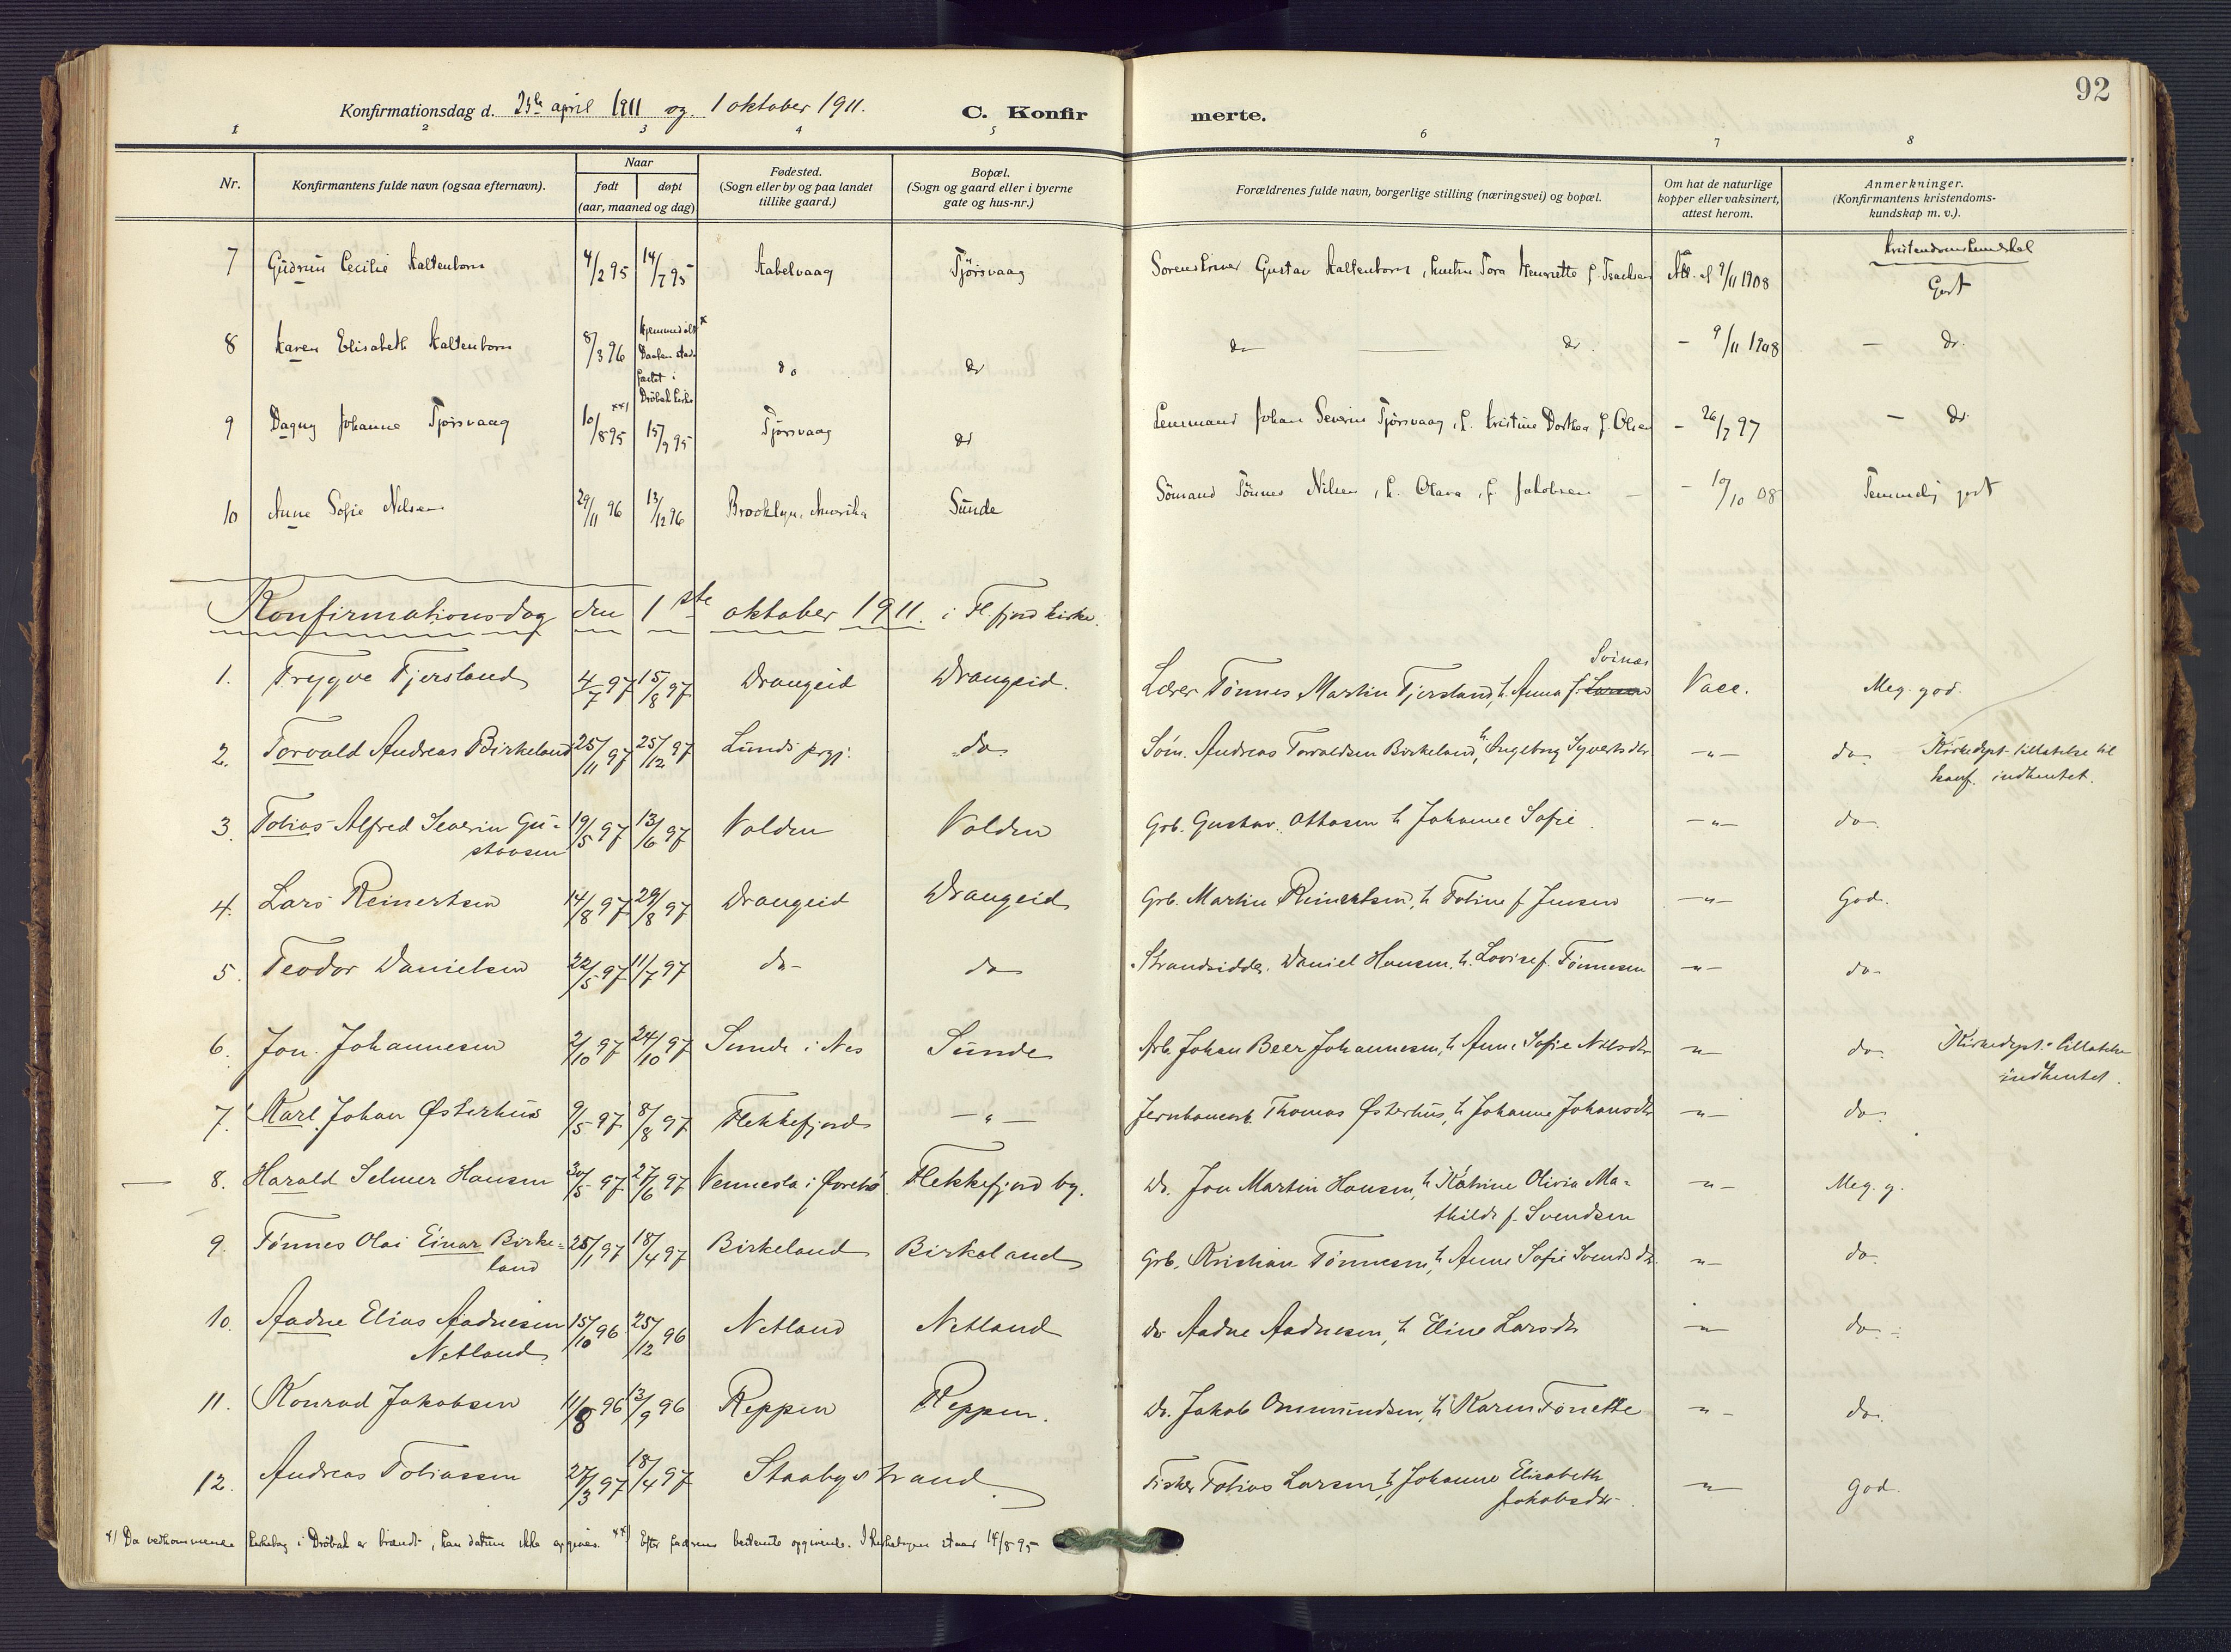 92
Konfirmationsdag d. 23de april 1911 og 1 oktober 1911. C. Konfirmerte.
1 2 3 4 5 6 7 8
Nr. Konfirmantens fulde navn (ogsaa efternavn). Naar født døpt (aar, maaned og dag) Fødested. (Sogn eller by og paa landet tillike gaard.) Bopæl. (Sogn og gaard eller i byerne gate og hus-nr.) Forældrenes fulde navn, borgerlige stilling (næringsvei) og bopæl. Om hat de naturlige kopper eller vaksinert, attest herom. Anmerkninger. (Konfirmantens kristendomskundskap m. v.).
Kristendomskundskab
7 Gudrun Cecilie Kaltenborn 4/2 95 14/7 95 Kabelvaag Tjørsvaag Sorenskriver Gustav Kaltenborn, hustru Tora Henriette f. Isachsen Att. af 9/11 1908 Godt
8 Karen Elisabeth Kaltenborn 8/3 96 Hjemmedøbt x Daaben stadfæstet i Drøbak kirke do do do do - 9/11 1908 - do.
9 Dagny Johanne Tjørsvaag 10/8 95 xx) 15/9 95 Tjørsvaag do Lensmand Johan Severin Tjørsvaag, h. Kristine Dorthea f. Olsen - 26/7 97 - do.
10 Anne Sofie Nilsen 29/11 96 13/12 96 Brooklyn, Amerika Sunde Sömand Tönnes Nilsen, h. Olava, f. Jakobsen - - 19/10 08 Temmelig godt
Konfirmationsdag den 1ste oktober 1911. i Fl. fjord kirke.
1. Trygve Tjersland 4/7 97 15/8 97 Drangeid Drangeid. Lærer Tönnes Martin Tjersland, h. Anna f. Larsen Svinas Vacc. Meg. god.
2. Torvald Andreas Birkeland 25/11 97 25/12 97 Lunds prgj: do. Söm. Andreas Torvaldsen Birkeland, h. Ingeborg Syvertsdtr -"- do. Kirkedept. tillatelse til
konf. indhentet.
3. Tobias Alfred Severin Gu-
stavsen 19/5 97 13/6 97 Volden Volden Grb. Gustav Ottosen h Johanne Sofie. -"- do.
4. Lars Reinertsen 14/8 97 29/8 97 Drangeid Drangeid Grb. Martin Reinertsen, h Tobine f Jensen -"- God.
5. Teodor Danielsen 22/5 97 11/7 97 do- do Strandsidder. Daniel Hansen, h. Lovise f. Tönnesen -"- do-
6. Jon Johannesen 2/10 97 24/10 97 Sunde i Nes Sunde Arb. Johan Beer Johannesen, h Anne Sofie Nilsdtr "- do. Kirkedept. tillatelse
indhentet.
7. Karl Johan Østerhus 9/5 97 8/8 97 Flekkefjord -"- Jernbanearb. Thomas Østerhus, h Johanne Johansdtr -"- do.
8. Harald Selmer Hansen 30/5 97 27/6 97 Vennesla i Øvrebø Flekkefjord by. Do. Jon Martin Hansen, h Katrine Olivia Ma-
thilde f. Svendsen -"- Meg. g.
9. Tönnes Olai Einar Birke-
land 25/1 97 18/4 97 Birkeland Birkeland Grb. Kristian Tönnesen, h Anne Sofie Svendsdtr. "- do.
10. Aadne Elias Aadnesen
Netland 15/10 96 25/12 96 Netland Netland do. Aadne Aadnesen, h Eline Larsdtr "- do.
11. Konrad Jakobsen 11/8 96 13/9 96 Reppen Reppen. Do. Jakob Ommundsen, h. Karen Tonette "- do.
12. Andreas Tobiassen 27/3 97 18/4 97 Staabystrand Fisker Tobias Larsen, h Johanne Elisabeth
Jakobsdtr. "- God.
x) Da vedkommende kirkebog i Drøbak er brændt, kan datum ikke opgives. xx) Efter faderens bestemte opgivende. I kirkebogen staar 14/8 95